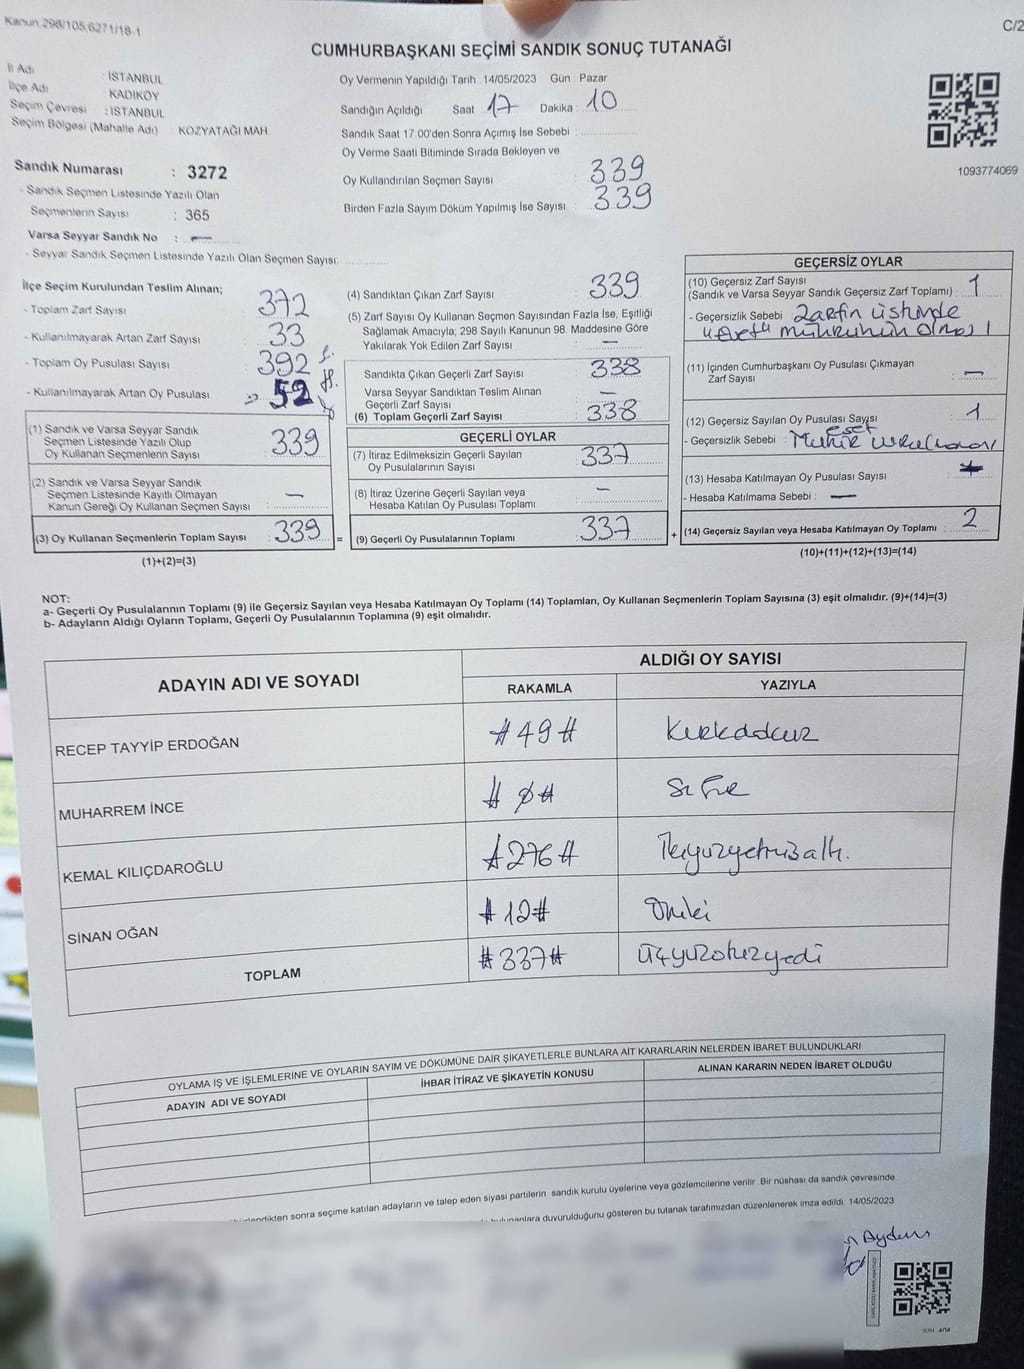 Kanun.298/105;6271/18-1
C/2
CUMHURBAŞKANI SEÇİMİ SANDIK SONUÇ TUTANAĞI
İl Adı : İSTANBUL
İlçe Adı : KADIKÖY
Seçim Çevresi : İSTANBUL
Seçim Bölgesi (Mahalle Adı) : KOZYATAĞI MAH
Sandık Numarası : 3272
- Sandık Seçmen Listesinde Yazılı Olan
Seçmenlerin Sayısı : 365
Varsa Seyyar Sandık No : —
- Seyyar Sandık Seçmen Listesinde Yazılı Olan Seçmen Sayısı:
Oy Vermenin Yapıldığı Tarih 14/05/2023 Gün : Pazar
Sandığın Açıldığı Saat 17 Dakika 10
Sandık Saat 17:00'den Sonra Açımış İse Sebebi :
Oy Verme Saati Bitiminde Sırada Bekleyen ve
Oy Kullandırılan Seçmen Sayısı : 339
Birden Fazla Sayım Döküm Yapılmış İse Sayısı : 339
1093774069
İlçe Seçim Kurulundan Teslim Alınan;
- Toplam Zarf Sayısı 372
- Kullanılmayarak Artan Zarf Sayısı 33
- Toplam Oy Pusulası Sayısı 392
- Kullanılmayarak Artan Oy Pusulası 52
(1) Sandık ve Varsa Seyyar Sandık
Seçmen Listesinde Yazılı Olup
Oy Kullanan Seçmenlerin Sayısı : 339
(2) Sandık ve Varsa Seyyar Sandık
Seçmen Listesinde Kayıtlı Olmayan
Kanun Gereği Oy Kullanan Seçmen Sayısı : —
(3) Oy Kullanan Seçmenlerin Toplam Sayısı : 339 =
(1)+(2)=(3)
(4) Sandıktan Çıkan Zarf Sayısı : 339
(5) Zarf Sayısı Oy Kullanan Seçmen Sayısından Fazla İse, Eşitliği
Sağlamak Amacıyla; 298 Sayılı Kanunun 98. Maddesine Göre
Yakılarak Yok Edilen Zarf Sayısı : —
Sandıkta Çıkan Geçerli Zarf Sayısı : 338
Varsa Seyyar Sandıktan Teslim Alınan
Geçerli Zarf Sayısı : —
(6) Toplam Geçerli Zarf Sayısı : 338
GEÇERLİ OYLAR
(7) İtiraz Edilmeksizin Geçerli Sayılan
Oy Pusulalarının Sayısı : 337
(8) İtiraz Üzerine Geçerli Sayılan veya
Hesaba Katılan Oy Pusulası Toplamı : —
(9) Geçerli Oy Pusulalarının Toplamı : 337 +
GEÇERSİZ OYLAR
(10) Geçersiz Zarf Sayısı
(Sandık ve Varsa Seyyar Sandık Geçersiz Zarf Toplamı) : 1
- Geçersizlik Sebebi : Zarfın üstünde
"evet" mührünün olması
(11) İçinden Cumhurbaşkanı Oy Pusulası Çıkmayan
Zarf Sayısı : —
(12) Geçersiz Sayılan Oy Pusulası Sayısı : 1
- Geçersizlik Sebebi :
(13) Hesaba Katılmayan Oy Pusulası Sayısı :
- Hesaba Katılmama Sebebi : —
(14) Geçersiz Sayılan veya Hesaba Katılmayan Oy Toplamı : 2
(10)+(11)+(12)+(13)=(14)
NOT:
a- Geçerli Oy Pusulalarının Toplamı (9) ile Geçersiz Sayılan veya Hesaba Katılmayan Oy Toplamı (14) Toplamları, Oy Kullanan Seçmenlerin Toplam Sayısına (3) eşit olmalıdır. (9)+(14)=(3)
b- Adayların Aldığı Oyların Toplamı, Geçerli Oy Pusulalarının Toplamına (9) eşit olmalıdır.
ADAYIN ADI VE SOYADI
ALDIĞI OY SAYISI
RAKAMLA YAZIYLA
RECEP TAYYİP ERDOĞAN #49# Kırkdokuz
MUHARREM İNCE # 0# Sıfır
KEMAL KILIÇDAROĞLU #276# İkiyüzyetmişaltı.
SİNAN OĞAN #12# Oniki
TOPLAM #337# Üçyüzotuzyedi
OYLAMA İŞ VE İŞLEMLERİNE VE OYLARIN SAYIM VE DÖKÜMÜNE DAİR ŞİKAYETLERLE BUNLARA AİT KARARLARIN NELERDEN İBARET BULUNDUKLARI
ADAYIN ADI VE SOYADI İHBAR İTİRAZ VE ŞİKAYETİN KONUSU ALINAN KARARIN NEDEN İBARET OLDUĞU
sonra seçime katılan adayların ve talep eden siyasi partilerin sandık kurulu üyelerine veya gözlemcilerine verilir. Bir nüshası da sandık çevresinde
duyurulduğunu gösteren bu tutanak tarafımızdan düzenlenerek imza edildi. 14/05/2023